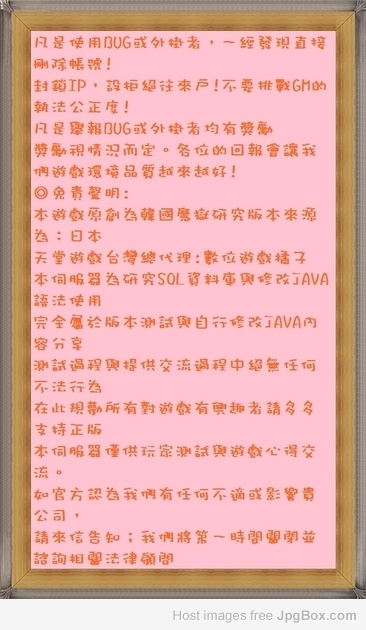 凡是使用BUG或外掛者，一經發現直接
刪除帳號!
封鎖IP，設拒絕往來戶!不要挑戰GM的
執法公正度!
凡是舉報BUG或外掛者均有獎勵
獎勵視情況而定。各位的回報會讓我
們遊戲環境品質越來越好!
◎免責聲明:
本遊戲原創為韓國魔獄研究版本來源
為：日本
天堂遊戲台灣總代理:數位遊戲橘子
本伺服器為研究SQL資料庫與修改jAVA
語法使用
完全屬於版本測試與自行修改jAVA內
容分享
測試過程與提供交流過程中絕無任何
不法行為
在此規勸所有對遊戲有興趣者請多多
支持正版
本伺服器僅供玩家測試與遊戲心得交
流。
如官方認為我們有任何不適或影響貴
公司，
請來信告知；我們將第一時間關閉並
諮詢相關法律顧問
Host images free JpgBox.com